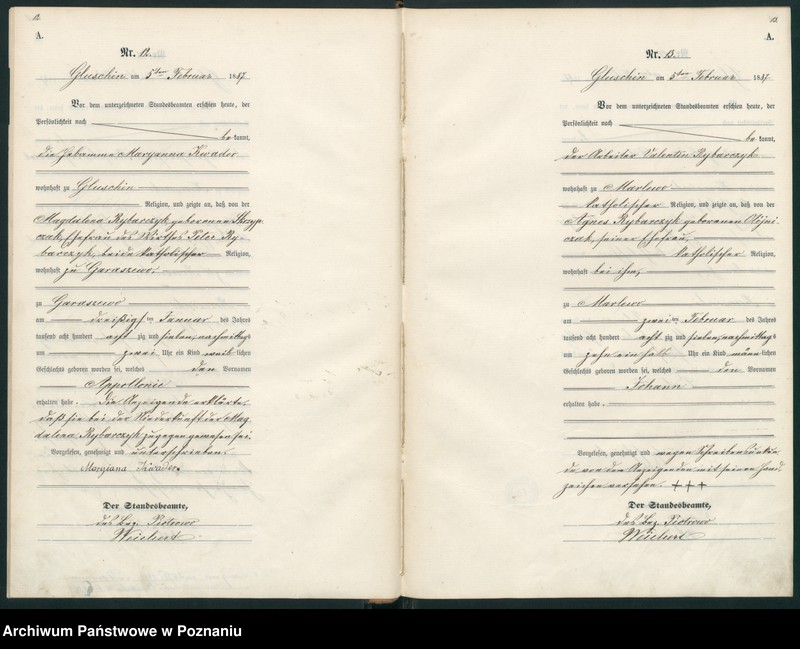 12.
A.
Nr. 12.
Gluschin am 5ten Februar 1887.
Vor dem unterzeichneten Standesbeamten erschien heute, der
Persönlichkeit nach
bekannt,
die Hebamme Maryanna Kwador
wohnhaft zu Gluschin
Religion, und zeigte an, daß von der
Magdalena Rybarczyk geborenen Skrzyp-
czak, Ehefrau des Wirthes Peter Ry-
barczyk, beide katholischer Religion,
wohnhaft zu Garaszewo,
zu Garaszewo
am dreißigsten Januar des Jahres
tausend acht hundert achtzig und sieben, nachmittags
um zwei Uhr ein Kind weiblichen
Geschlechts geboren worden sei, welches den Vornamen
Appollonie
erhalten habe. Die Anzeigende erklärte,
daß sie bei der Niederkunft der Mag-
dalena Rybarczyk zugegen gewesen sei.
Vorgelesen, genehmigt und unterschrieben.
Maryiana Kwador.
Der Standesbeamte,
des Bez. Piotrowo
Weichert
13.
A.
Nr. 13.
Gluschin am 5ten Februar 1887.
Vor dem unterzeichneten Standesbeamten erschien heute, der
Persönlichkeit nach
bekannt,
der Arbeiter Valentin Rybarczyk
wohnhaft zu Marlewo
katholischer Religion, und zeigte an, daß von der
Agnes Rybarczyk geborenen Olejni-
czak, seiner Ehefrau,
katholischer Religion,
wohnhaft bei ihm,
zu Marlewo
am zweiten Februar des Jahres
tausend acht hundert achtzig und sieben, nachmittags
um zehn ein halb Uhr ein Kind männlichen
Geschlechts geboren worden sei, welches den Vornamen
Johann
erhalten habe.
Vorgelesen, genehmigt und wegen Schreibensunkun-
de von dem Anzeigenden mit seinem Hand-
zeichen versehen. +++
Der Standesbeamte,
des Bez. Piotrowo
Weichert
Archiwum Państwowe w Poznaniu